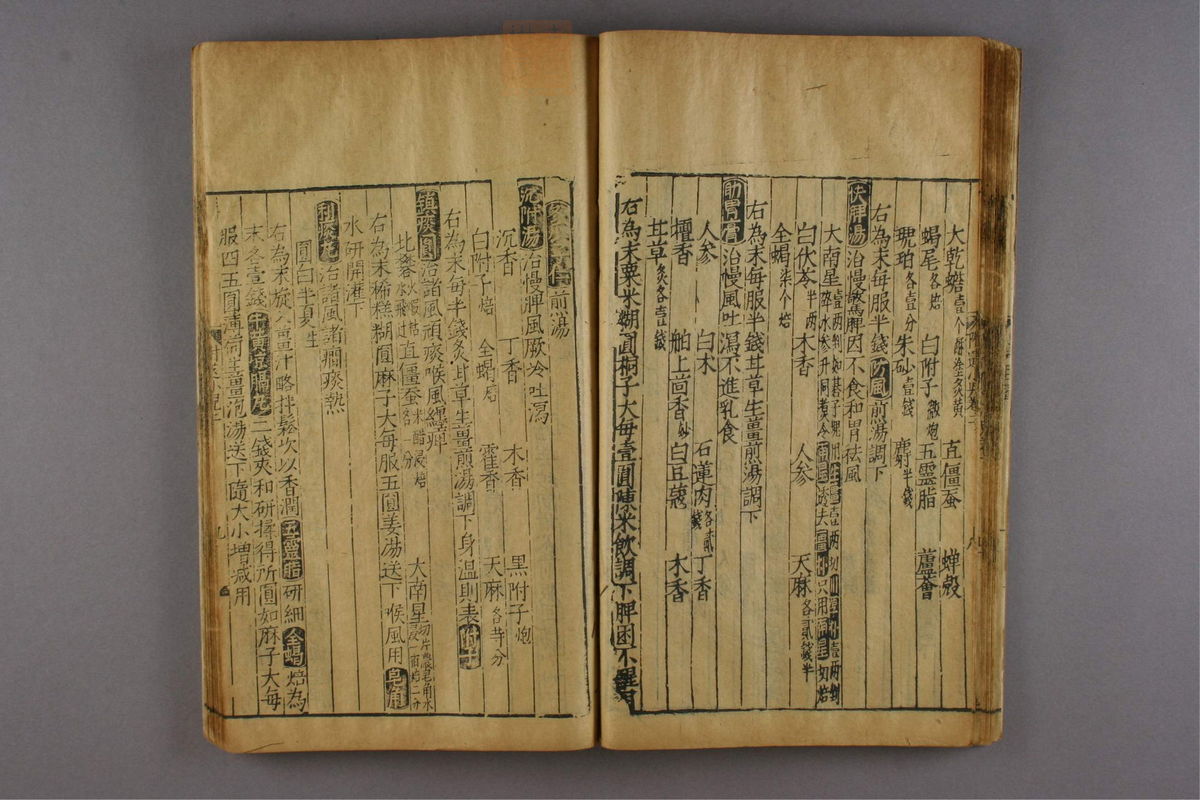 大乾蟾壹个酥塗炙黃 直僵蚕 蟬殼
蝎尾各焙 白附子微炮 五靈脂 蘆薈
琥珀各壹分 朱砂壹錢 麝半錢
右為末每服半錢防風煎湯調下
扶脾湯治慢驚脾因不食和胃祛風
大南星壹兩 生薑壹兩 厚朴壹兩 只用南星切焙
白伏苓半兩 木香 人参 天麻各貳錢半
全蝎柒个焙
右為末每服半錢甘草生薑煎湯調下
助胃膏治慢風吐瀉不進乳食
人参 白木 石蓮肉各貳錢 丁香
檀香 舶上茴香炒 白豆蔻 木香
甘草炙各壹錢
右為末粟米糊圓桐子大每壹圓陳米飲調下脾困不醒用
煎湯
沉附湯治慢脾風厥冷吐瀉
沉香 丁香 木香 黑附子炮
白附子焙 全蝎焙 藿香 天麻各壹分
右為末每半錢炙甘草生薑煎湯調下身温則表附子
鎮痰圓治諸風頑痰喉風纏痺
直僵蚕米醋浸焙 大南星
右為末稀糕糊圓麻子大每服五圓姜湯送下喉風用皂角
水研開灌下
利痰丸治諸風諸癎痰熱
圓白半夏生
右為末旋入薑汁略拌鬆次以香潤五靈脂研細全蝎焙為
末各壹錢二錢夾和研擇得所圓如麻子大每
服四五圓薄荷生薑泡湯送下隨大小增减用